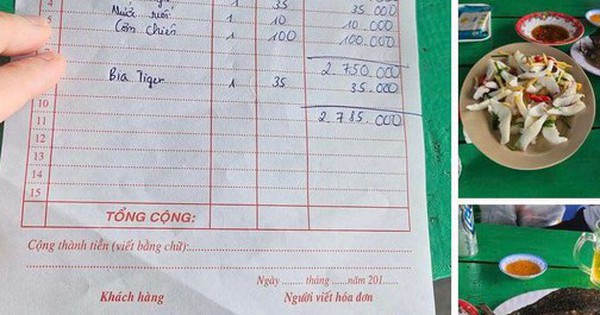 4 1 35 35.000
5 Nước suối 1 10 10.000
Cơm chiên 1 100 100.000
2.750.000
Bia Tiger 1 35 35.000
10
11 2.785.000
12
13
14
15
TỔNG CỘNG:
Cộng thành tiền (viết bằng chữ):
Ngày ........ tháng ......năm 201.....
Khách hàng Người viết hóa đơn